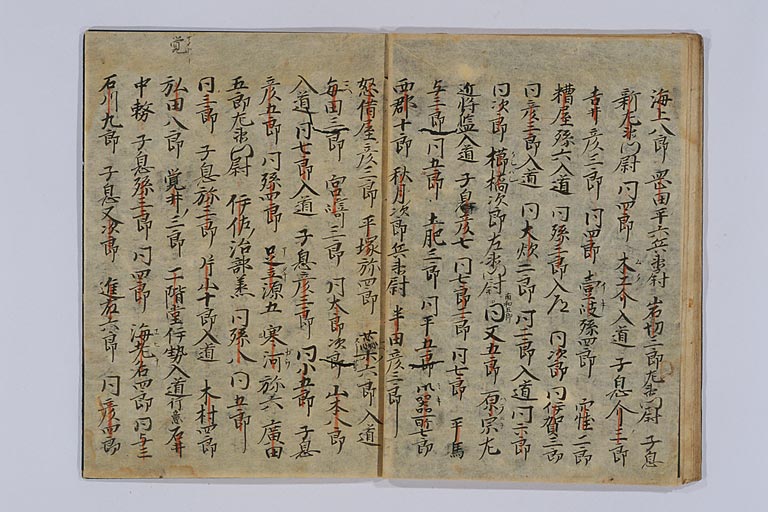 海上八郎 岡田平六兵衛尉 岩切三郎左衛門尉 子息
新左衛門尉 同四郎 木工介入道 子息介三郎
吉井彦三郎 同四郎 壹岐孫四郎 窪二郎
糟屋孫六入道 同孫三郎入道 同次郎 同伊賀三郎
同彦三郎入道 同大炊二郎 同二郎入道 同六郎
同次郎 櫛橋次郎左衛門尉 同又五郎 原宗左
近将監入道 子息彦七 同七郎三郎 同七郎 平馬
与三郎 同五郎 土肥三郎 同平五郎 御器所七郎
西郡十郎 秋月次郎兵衛尉 半田彦三郎
怒借屋彦三郎 平塚孫四郎 藁六郎入道
毎田三郎 宮崎三郎 同太郎次郎 山本八郎
入道 同七郎入道 子息彦三郎 同小五郎 子息
彦五郎 同孫四郎 足立源五 寒河孫六 廣田
五郎左衛門尉 伊佐治部丞 同孫八 同五郎
同三郎 子息孫三郎 片小十郎入道 木村四郎
弘田八郎 覚井三郎 二階堂伊勢入道 石井
中務 子息孫三郎 同四郎 海老名四郎 同与三
石川九郎 子息又次郎 進右六郎 同彦四郎
覚